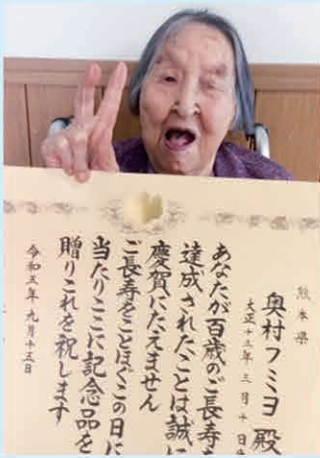 熊本県
奥村フミヨ殿
大正十二年三月十日
あなたが百歳のご長寿を
達成されたことは誠に
慶賀にたえません
ご長寿をことほぐこの日に
当たりここに記念品を
贈りこれを祝します
令和五年九月十五日